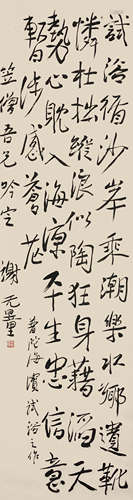 試浴循沙岸乘潮樂水鄉遺靴
憐杜拙縱浪似陶狂身藉滔天
熱心耽入海涼平生忠信意
暫涉感蒼茫
普陀海濱試浴之作
笠僧吾兄吟定
謝无量